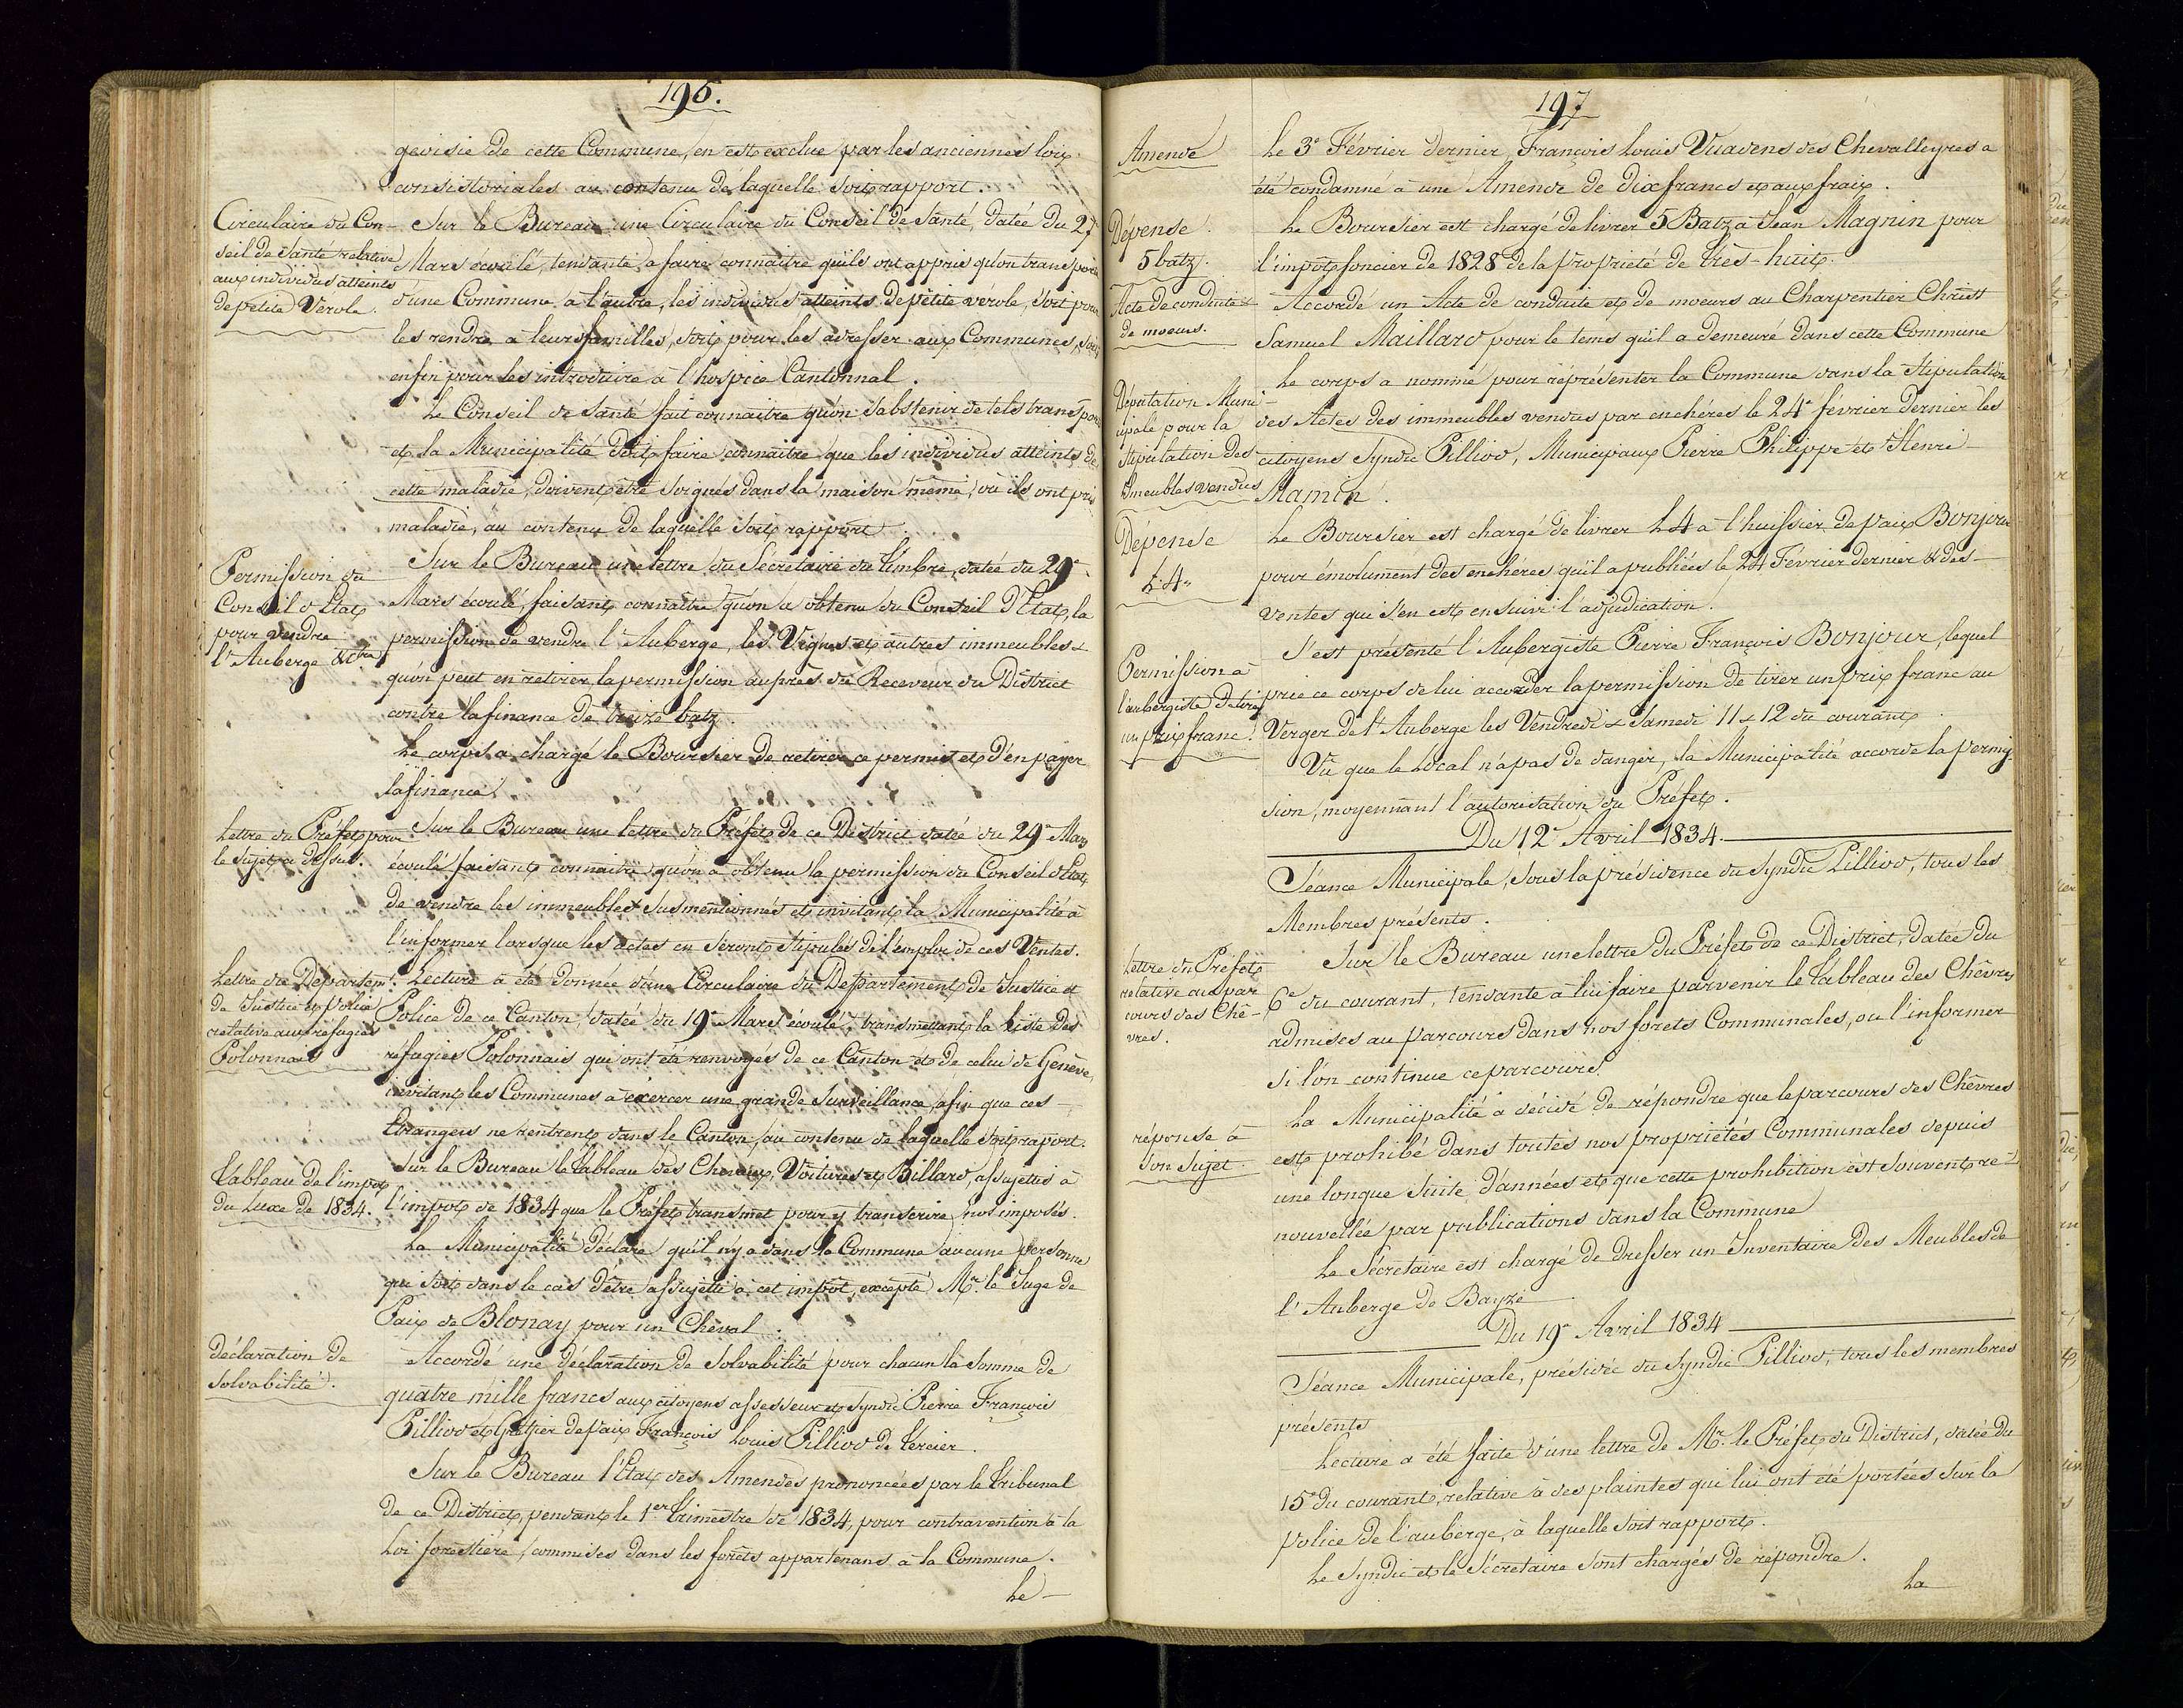 196.
geoisie de cette Commune, en est exclue par les anciennes loix
consistoriales au contenu de laquelle soit rapport.
Circulaire du Con-
seil de Santé relative
aux individus atteints
de petite Verole.
Sur le Bureau une Circulaire du Conseil de Santé, datée du 27
Mars écoulé, tendante, a faire connaitre qu'ils ont appris qu'on transporte
d'une Commune à l'autre, les individus atteints de petite vérole, soit pour
les rendre a leurs familles, soit pour les adresser aux Communes, soit
enfin pour les introduire à l'hospice Cantonnal.
Le Conseil de Santé fait connaitre qu'on s'abstenir de tels transports
et la Municipalité doit faire connaitre que les individus atteints de
cette maladie, doivent être soignés dans la maison même, où ils ont pris
maladie, au contenu de laquelle soit rapport.
Permission du
Conseil d'Etat
pour vendre
l'Auberge &ctra
Sur le Bureau une lettre du Secrétaire du timbre, datée du 29e
Mars écoulé, faisant connaitre qu'on a obtenu du Conseil d'Etat, la
permission de vendre l'Auberge, les Vignes et autres immeubles &
qu'on peut en retirer, la permission auprès du Receveur du District
contre la finance de treize batz.
Le corps a chargé le Boursier de retirer ce permis et d'en payer
la finance.
Lettre du Préfet pour
le sujet ci dessus.
Sur le Bureau une lettre du Préfet de ce District datée du 29e Mars
écoulé faisant connaitre qu'on a obtenu la permission du Conseil d'Etat
de vendre les immeubles susmentionnés et invitant la Municipalité à
l'informer lorsque les actes en seront stipulés de l'emploi de ces Ventes.
Lettre du Départemt.
de Justice et Police
relative aux réfugiés
Polonnais
Lecture a été donnée d'une Circulaire du Département de Justice et
Police de ce Canton, datée du 19e Mars écoulé, transmettant la Liste des
réfugiés Polonnais qui ont été renvoyés de ce Canton et de celui de Genève,
invitant les Communes a exercer une grande Surveillance, afin que ces
Etrangers ne rentrent dans le Canton, au contenu de laquelle soit raport.
Tableau de l'impot
du Luxe de 1834.
Sur le Bureau le tableau des Chevaux, Voitures et Billard, assujettis à
l'impot de 1834 que le Préfet transmet pour y transcrire nos imposés.
La Municipalité déclare qu'il n'y a dans la Commune aucune personne
qui soit dans le cas d'être assujetti à cet impôt, excepté Mr. le Juge de
Paix de Blonay pour un Cheval.
déclaration de
Solvabilité.
Accordé une déclaration de Solvabilité pour chacun la somme de
quatre mille francs aux citoyens assesseur et syndic Pierre François
Pilliod et Greffier de paix François Louis Pilliod de Tercier.
Sur le Bureau l'Etat des Amendes prononcées par le Tribunal
de ce District, pendant le 1er trimestre de 1834, pour contravention à la
Loi forestière, commises dans les forêts appartenans à la Commune.
Le
197
Amende
Le 3e Février dernier, François Louis Vuavens des Chevalleyres a
été condamné à une Amende de dix francs et aux fraix.
Dépense
5 batz.
Le Boursier est chargé de livrer 5 Batz a Jean Magnin pour
l'impot foncier de 1828 de la propriété de très-huit.
Acte de conduite &
de moeurs.
Accordé un Acte de conduite et de moeurs au Charpentier Christ
Samuel Maillard pour le tems qu'il a demeuré dans cette Commune
Députation Muni-
cipale pour la
Stipulation des
Imeubles vendus
Le corps a nommé pour réprésenter la Commune dans la Stipulation
des Actes des immeubles vendus par enchéres le 24e février dernier les
citoyens Syndic Pilliod, Municipaux Pierre Philippe et Henri
Mamin.
Depense
L. 4 "
Le Boursier est chargé de livrer L 4 à l'huissier de paix Bonjour
pour émolument des enchères qu'il a publiées le 24 Février dernier & des
ventes qui s'en est ensuivi l'adjudication.
Permission à
l'aubergiste de tirer
un prix franc.
S'est présenté l'Aubergiste Pierre François Bonjour, lequel
prie ce corps de lui accorder la permission de tirer un prix franc au
Verger de l'Auberge les Vendredi & Samedi 11 & 12 du courant.
Vû que le Local n'a pas de danger, la Municipalité accorde la permis-
sion, moyennant l'autorisation du Préfet.
Du 12e Avril 1834.
Séance Municipale, sous la présidence du Syndic Pilliod, tous les
Membres présents.
Lettre du Préfet
relative au par
cours des Chê-
vres.
Sur le Bureau une lettre du Préfet de ce District, datée du
6e du courant, tendante à lui faire parvenir le tableau des Chêvres
admises au parcours dans nos forets Communales, ou l'informer
si l'on continue ce parcours.
réponse à
son sujet.
La Municipalité a décidé de répondre que le parcours des Chêvres
est prohibé dans toutes nos propriétés Communales depuis
une longue suite d'années et que cette prohibition est souvent re-
nouvellée par publications dans la Commune
Le Sécretaire est chargé de dresser un Inventaire des Meubles de
l'Auberge de Bayze
Du 19e Avril 1834
Séance Municipale, présidée du Syndic Pilliod, tous les membres
présents
Lecture a été faite d'une lettre de Mr. le Préfet du District, datée du
15e du courant, relative à des plaintes qui lui ont été portées sur la
police de l'auberge, à laquelle soit rapport.
Le Syndic et le Sécretaire sont chargés de répondre.
La